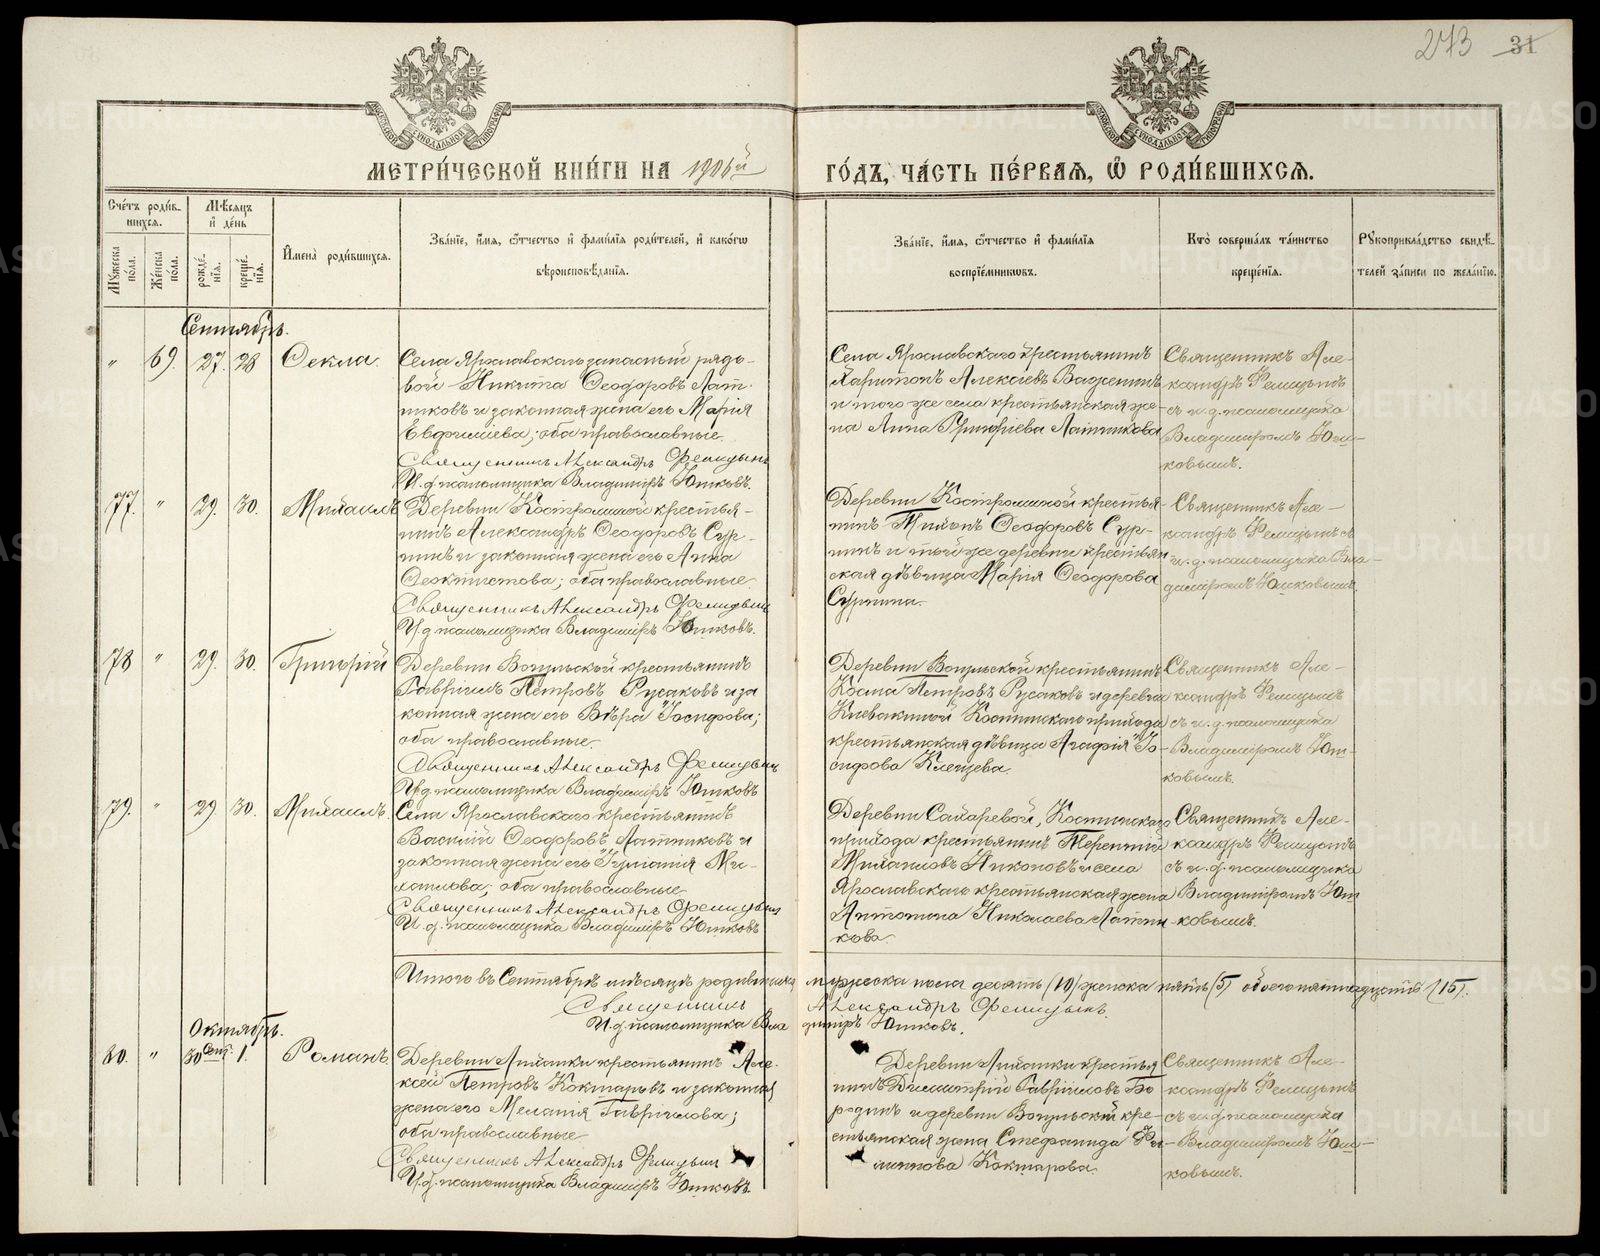 273 31
МЕТРИ́ЧЕСКОЙ КНИ́ГИ НА 1906й ГО́ДЪ, ЧА́СТЬ ПЕ́РВАЯ, Ѡ РОДИ́ВШИХСЯ.
Сче́тъ роди́вшихся.
Мѣ́сяцъ и де́нь
Му́жеска по́ла.
Же́нска по́ла.
рожде́нїя.
креще́нїя.
И҆мена̀ роди́вшихся.
Зва́нїе, и҆́мя, ѻ҆́тчество и҆ фами́лїя роди́телей, и҆ како́гѡ
вѣроисповѣ́данїя.
Зва́нїе, и҆́мя, ѻ҆́тчество и҆ фами́лїя
воспрїе́мниковъ.
Кто̀ соверша́лъ та́инство
креще́нїя.
Рукоприкла́дство свидѣ́телей за́писи по жела́нїю.
Сентябрь.
" 69. 27. 28 Ѳекла.
Села Ярославскаго запасный рядо-
вой Никита Ѳеодоровъ Лат-
никовъ и законная жена его Марія
Евфиміева; оба православные.
Священникъ Александръ Фелицынъ
И.д. псаломщика Владиміръ Юшковъ.
Села Ярославскаго крестьянинъ
Харитонъ Алексіевъ Важенинъ
и того же села крестьянская же-
на Анна Григоріева Латникова
Священникъ Але-
ксандръ Фелицынъ
съ и.д. псаломщика
Владиміромъ Юш-
ковымъ.
77. " 29. 30. Михаилъ
Деревни Костроминой крестья-
нинъ Александръ Ѳеодоровъ Сур-
нинъ и законная жена его Анна
Ѳеоктистова; оба православные
Священникъ Александръ Фелицынъ
И.д. псаломщика Владиміръ Юшковъ.
Деревни Костроминой крестья-
нинъ Тихонъ Ѳеодоровъ Сур-
нинъ и той же деревни крестьян
ская дѣвица Марія Ѳеодорова
Сурнина.
Священникъ Але-
ксандръ Фелицынъ съ
и.д. псаломщика Вла-
диміромъ Юшковымъ.
78 " 29. 30. Григорій
Деревни Вогульской крестьянинъ
Гавріилъ Петровъ Русаковъ и за
конная жена его Вѣра Іосифова;
оба православные.
Священникъ Александръ Фелицынъ
И.д. псаломщика Владиміръ Юшковъ
Деревни Вогульской крестьянинъ
Косма Петровъ Русаковъ и деревни
Клевакиной Костинскаго прихода
крестьянская дѣвица Агафія Іо-
сифова Клевцева.
Священникъ Але-
ксандръ Фелицынъ
съ и.д. псаломщика
Владиміромъ Юш-
ковымъ.
79. " 29. 30. Михаилъ.
Села Ярославскаго крестьянинъ
Василій Ѳеодоровъ Латниковъ и
законная жена его Іуліанія Ми-
хаилова; оба православные
Священникъ Александръ Фелицынъ
И.д. псаломщика Владиміръ Юшковъ
Деревни Сахаревой, Костинскаго
прихода крестьянинъ Терентій
Михаиловъ Никоновъ и села
Ярославскаго крестьянская жена
Антонина Николаева Латни-
кова.
Священникъ Але-
ксандръ Фелицынъ
съ и.д. псаломщика
Владиміромъ Юш
ковымъ.
Итого въ Сентябрѣ мѣсяцѣ родившихся мужеска пола десять (10) женска пять (5) обоего пятнадцать (15).
Священникъ Александръ Фелицынъ.
И.д. псаломщика Владиміръ Юшковъ.
Октябрь.
80. " 30 Сент. 1. Романъ.
Деревни Лиханки крестьянинъ Але-
ксей Петровъ Кокшаровъ и законная
жена его Меланія Гавріилова;
оба православные
Священникъ Александръ Фелицынъ
И.д. псаломщика Владиміръ Юшковъ.
Деревни Лиханки крестья
нинъ Димитрій Гавріиловъ Бо
родинъ и деревни Вогульской кре-
стьянская жена Стефанида Фи-
липпова Кокшарова.
Священникъ Але-
ксандръ Фелицынъ
съ и.д. псаломщика
Владиміромъ Юш-
ковымъ.